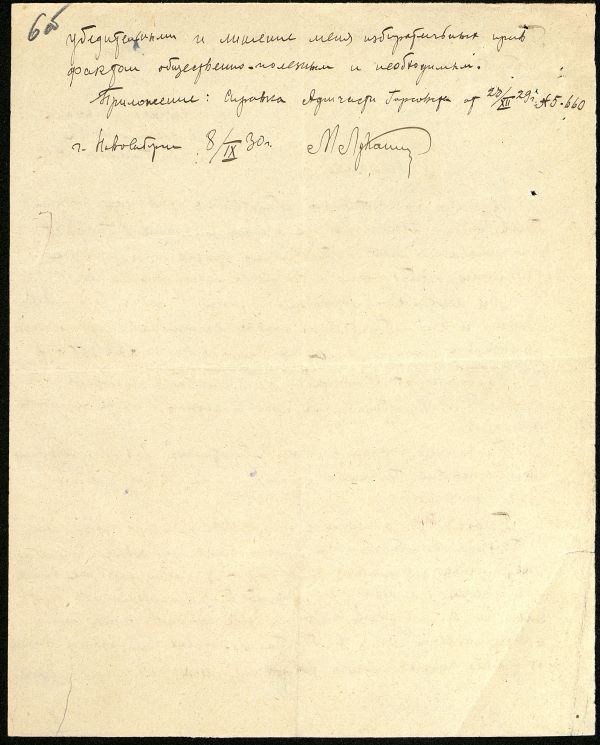 6б
убедительными и лишение меня избирательных прав
фактом общественно-полезным и необходимым.
Приложение: Справка Адмчасти от 23/XII 29г. № 5-660
г. Новосибирск 8/IX 30 г.